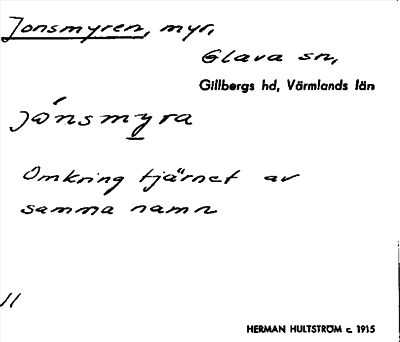 Jonsmyren, myr,
Glava sn,
Gillbergs hd, Värmlands län
jónsmyra
Omkring tjärnet av
samma namn
11
HERMAN HULTSTRÖM c. 1915